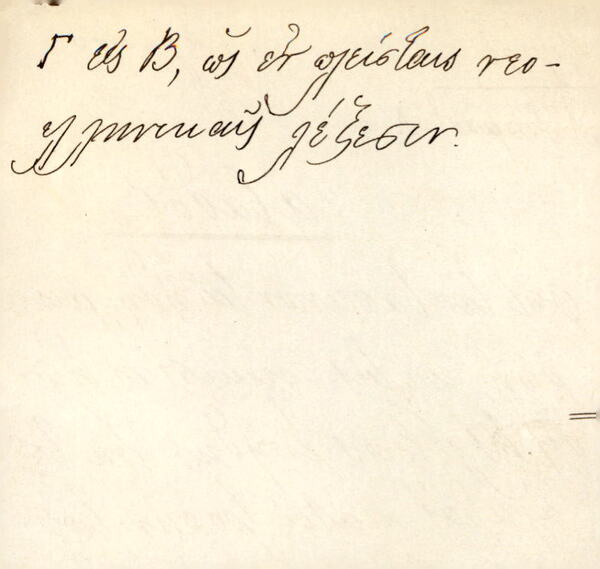 Γ εἰς Β, ὡς ἐν πλείσταις νεο-
ελληνικαῖς λέξεσιν.